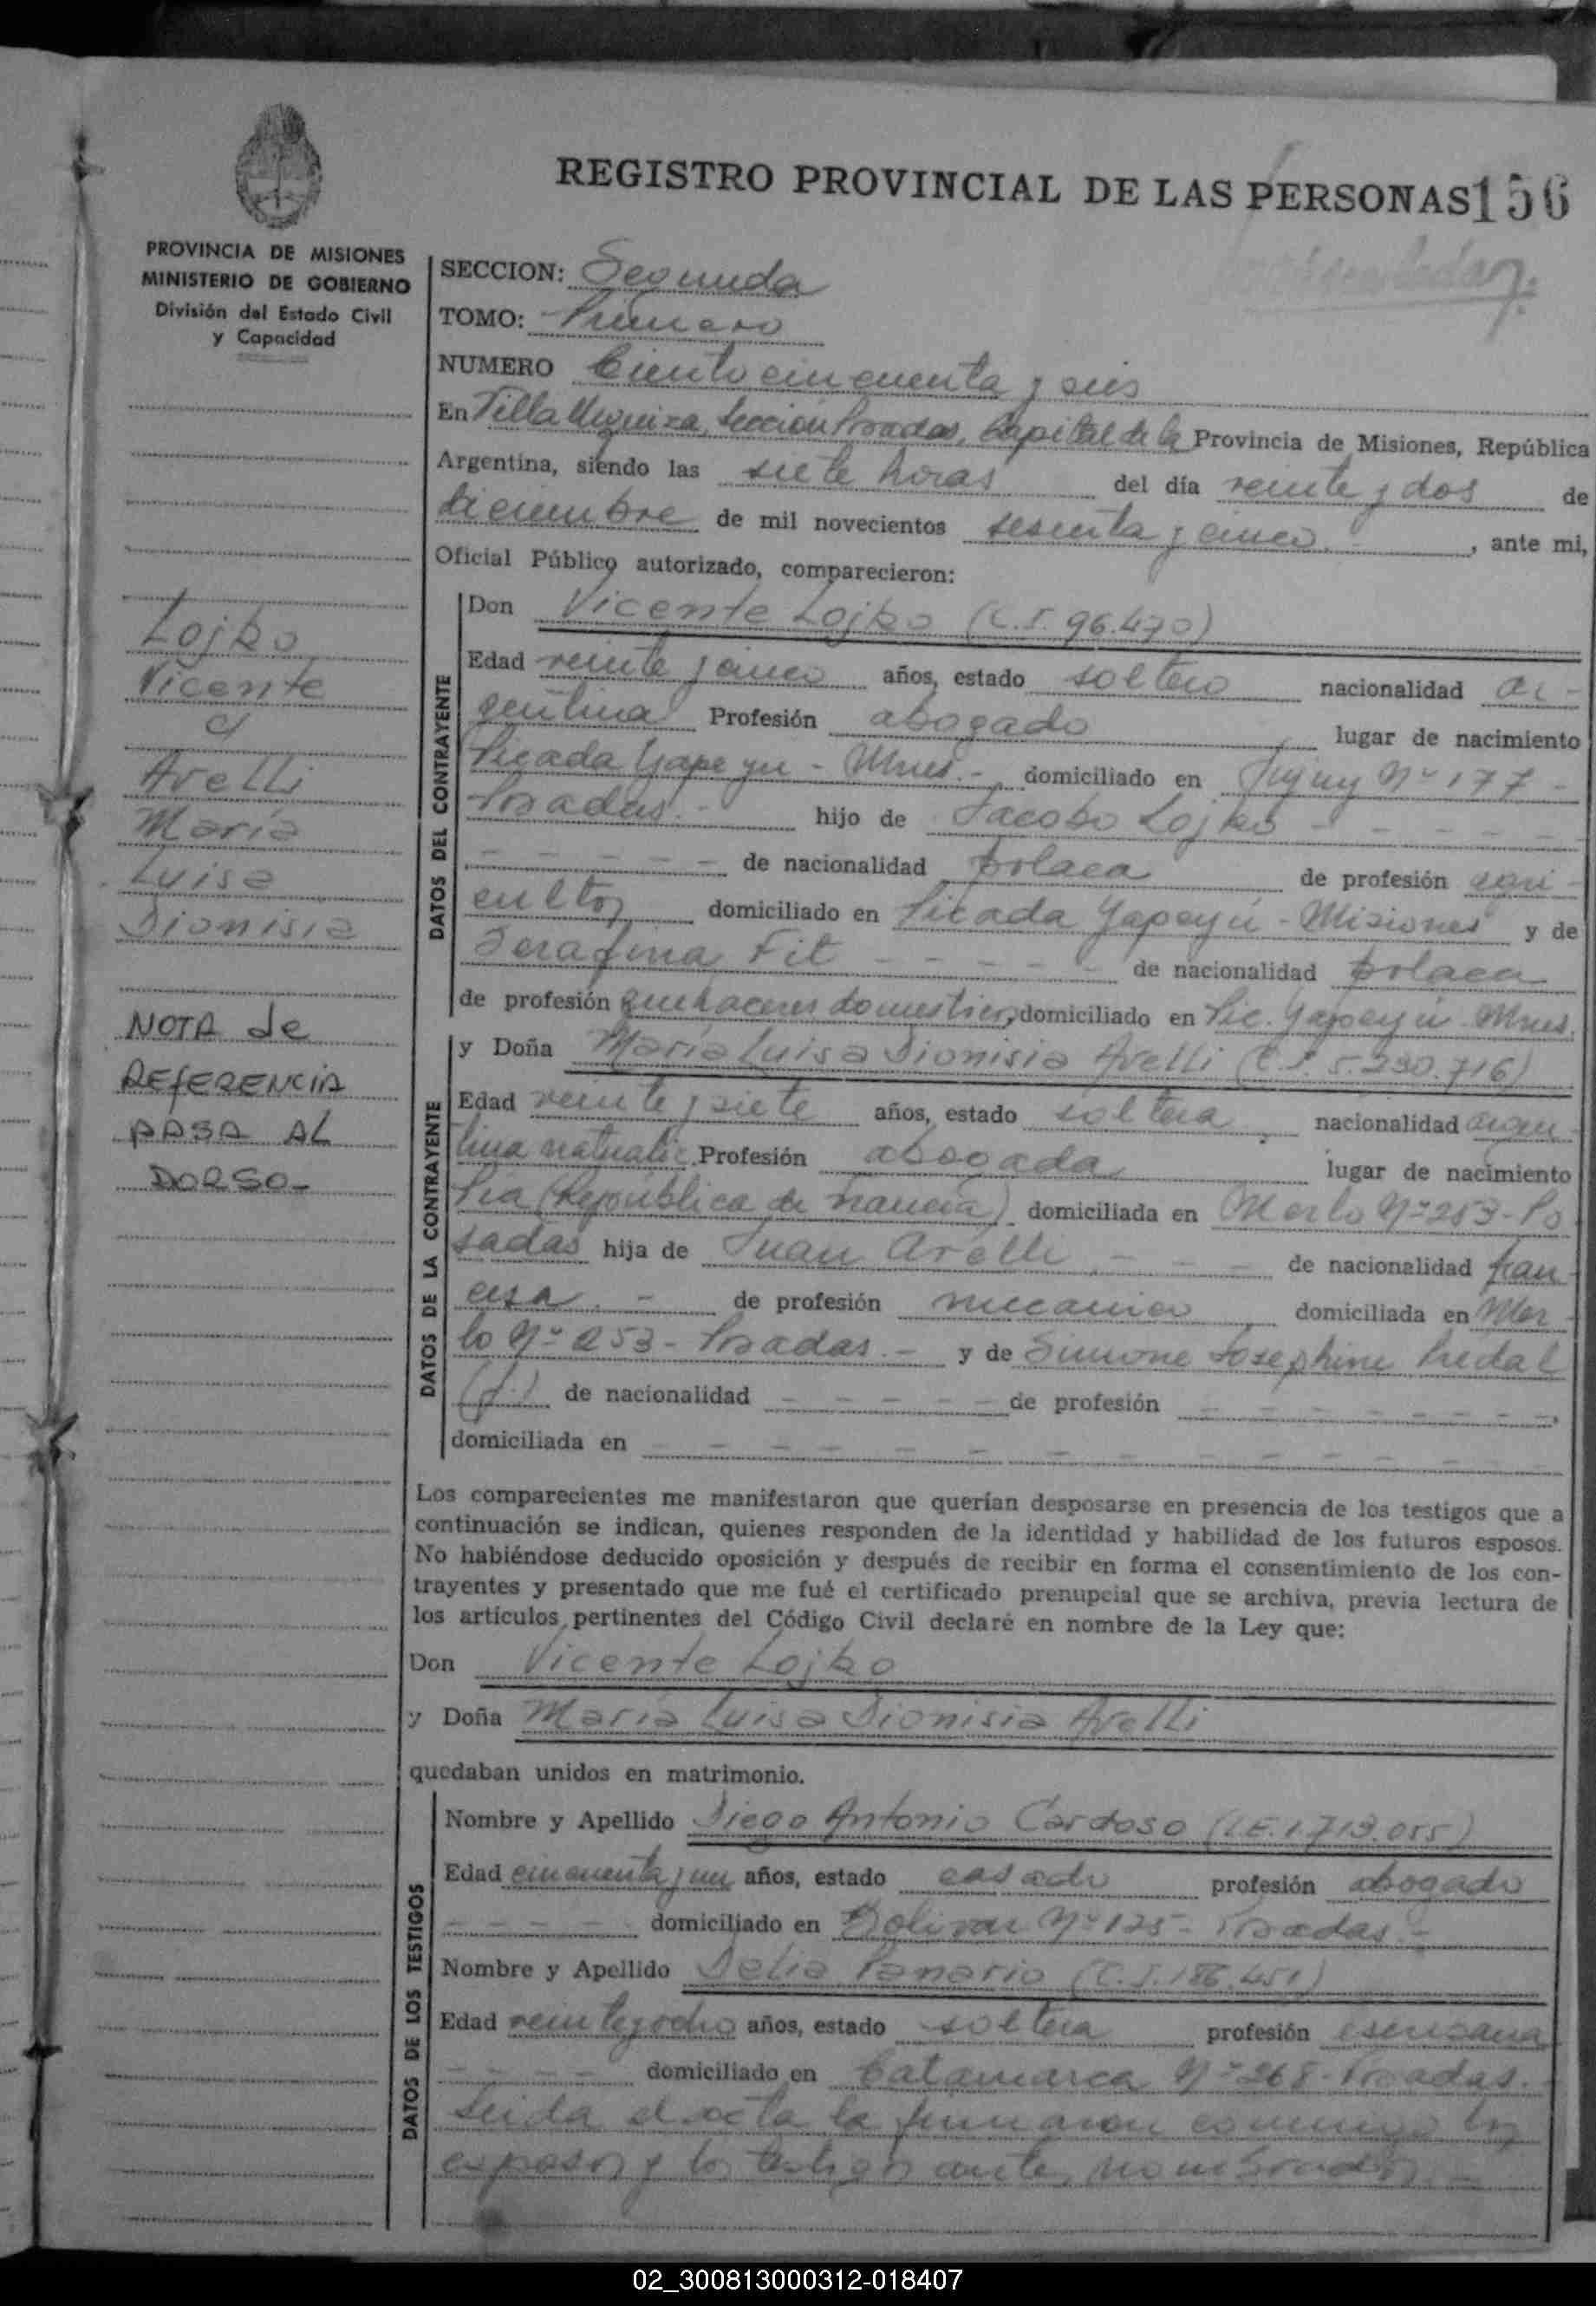 REGISTRO PROVINCIAL DE LAS PERSONAS 156
PROVINCIA DE MISIONES
MINISTERIO DE GOBIERNO
División del Estado Civil
y Capacidad
SECCION: Segunda
TOMO: Primero
NUMERO Ciento cincuenta y seis
En Villa Urquiza, Sección Posadas, Capital de la Provincia de Misiones, República
Argentina, siendo las siete horas del día veinte y dos de
diciembre de mil novecientos sesenta y cinco.-, ante mi,
Oficial Público autorizado, comparecieron:
Lojko
Vicente
c/
Arelli
María
Luisa
Dionisia
NOTA de
REFERENCIA
PASA AL
DORSO-
DATOS DEL CONTRAYENTE
Don Vicente Lojko (C.I. 96.470)
Edad veinte y cinco años, estado soltero nacionalidad ar-
gentina Profesión abogado lugar de nacimiento
Picada Yapeyu - Mnes.- domiciliado en Jujuy Nº 177 -
Posadas.- hijo de Jacobo Lojko - - - - - -
- - - - - - de nacionalidad polaca de profesión agri-
cultor domiciliado en Picada Yapeyú - Misiones y de
Serafina Fit - - - - - - de nacionalidad polaca
de profesión quehaceres domesticos, domiciliado en Pic. Yapeyú - Mnes.
DATOS DE LA CONTRAYENTE
y Doña María Luisa Dionisia Arelli (C.I. 5.290.716)
Edad veinte y siete años, estado soltera nacionalidad argen-
tina naturaliz. Profesión abogada lugar de nacimiento
(República de Francia) domiciliada en Merlo Nº 253 - Po
sadas hija de Juan Arelli - - - de nacionalidad fran-
cesa.- de profesión mecanico domiciliada en Mer
lo Nº 253 - Posadas.- y de Simone Josephine
(f.) de nacionalidad - - - - - de profesión - - - - - - -
domiciliada en - - - - - - - - - - - -
Los comparecientes me manifestaron que querían desposarse en presencia de los testigos que a
continuación se indican, quienes responden de la identidad y habilidad de los futuros esposos.
No habiéndose deducido oposición y después de recibir en forma el consentimiento de los con-
trayentes y presentado que me fué el certificado prenupcial que se archiva, previa lectura de
los artículos pertinentes del Código Civil declaré en nombre de la Ley que:
Don Vicente Lojko
y Doña María Luisa Dionisia Arelli
quedaban unidos en matrimonio.
DATOS DE LOS TESTIGOS
Nombre y Apellido Diego Antonio Cardoso (L.E. 1.713.055)
Edad cincuenta y un años, estado casado profesión abogado
- - - - - - domiciliado en Bolivar Nº 125 - Posadas.-
Nombre y Apellido Delia Panario (C.I. 186.451)
Edad veinte y ocho años, estado soltera profesión escribana
- - - - domiciliado en Catamarca Nº 268 - Posadas.
Leida el acta la firmaron conmigo los
esposos y los testigos antes nombrados.-
02_300813000312-018407